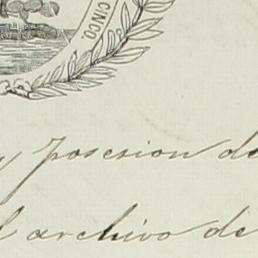 CINCO
y posesion de
l archivo de